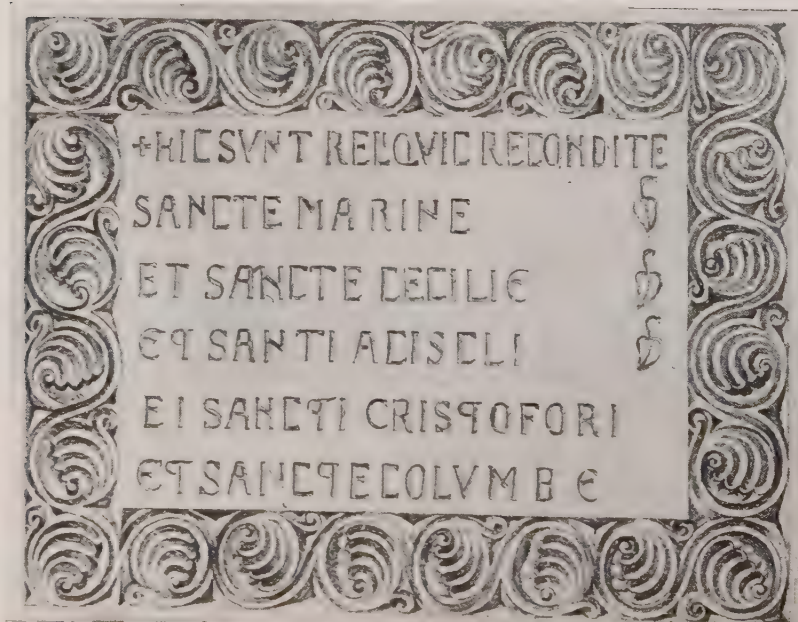 +HIC SVNT RELIQVIE RECONDITE
SANCTE MARINE
ET SANCTE CECILIE
ET SANTI ACISCLI
ET SANCTI CRISTOFORI
ET SANCTE COLVMBE